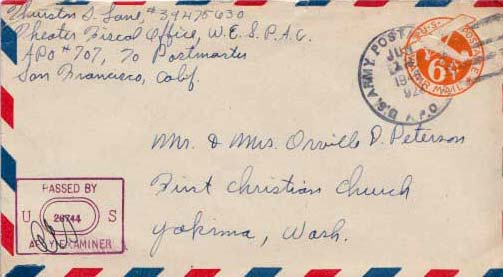 Thurston D. Lane, #39475630
Theater Fiscal Office, W.E.S.P.A.C.
APO #707, To Postmaster
San Francisco, Calif.
U.S. ARMY POST
A.P.O.
JUN
19
92
U.S. POSTAGE
6¢
AIR MAIL
Mr. & Mrs. Orville D. Peterson
First Christian Church
Yakima, Wash.
PASSED BY
U 26744 S
ARMY EXAMINER